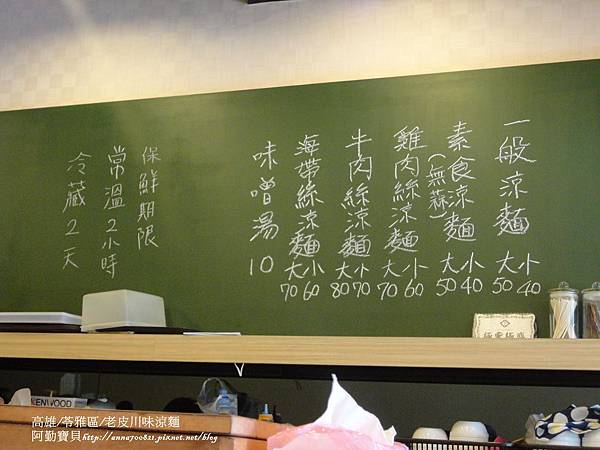 一般涼麵 大50 小40
素食涼麵(無蒜) 大50 小40
雞肉絲涼麵 大70 小60
牛肉絲涼麵 大80 小70
海帶絲涼麵 大70 小60
味噌湯 10
保鮮期限
常溫2小時
冷藏2天
KENWOOD
高雄/苓雅區/老皮川味涼麵
阿勤寶貝http://anna700821.pixnet.net/blog